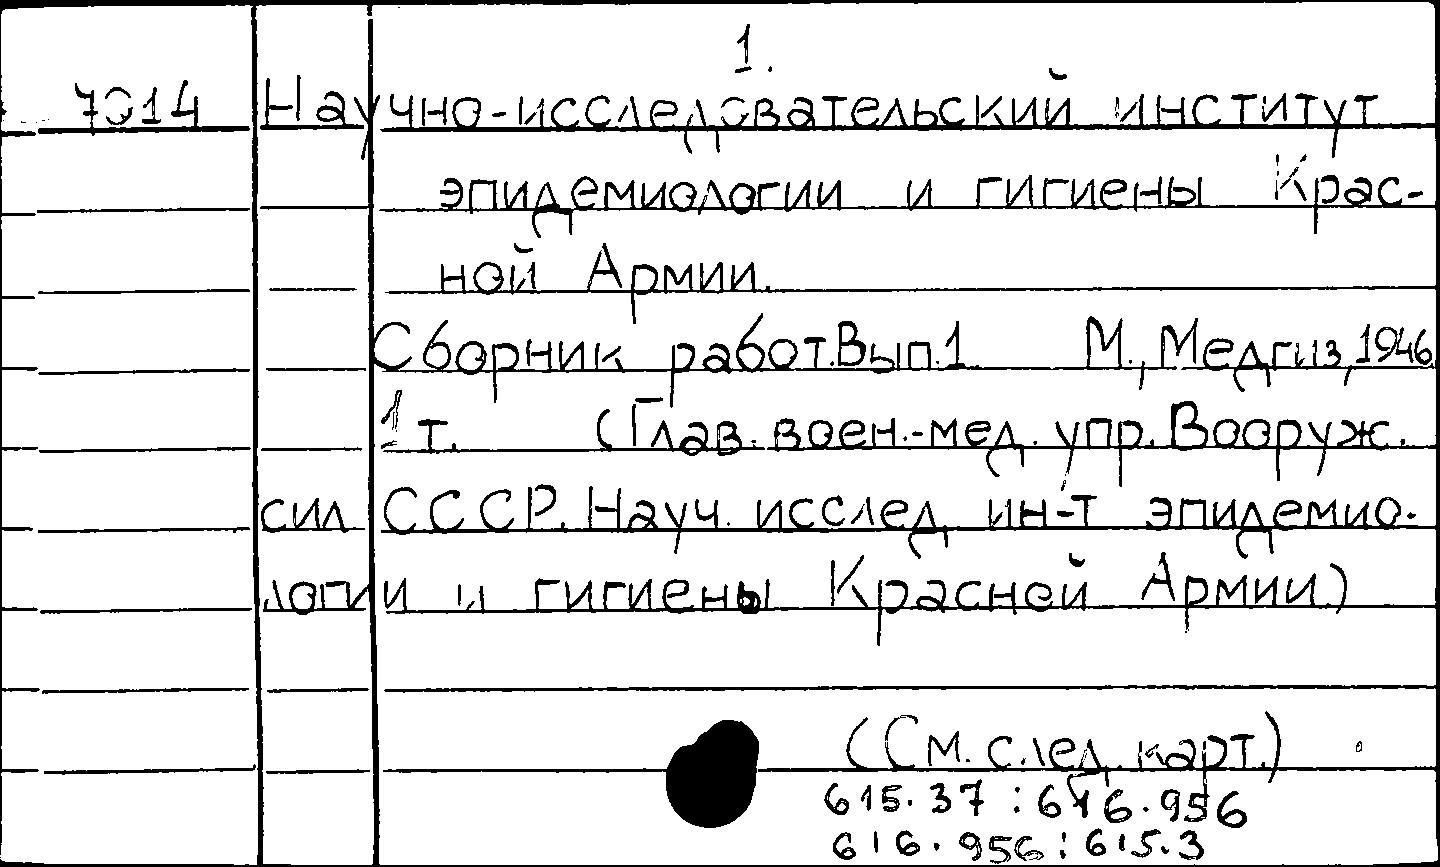 1.
7014 Научно-исследовательский институт
эпидемиологии и гигиены Крас-
ной Армии.
Сборник работ.Вып.1 М.,Медгиз,1946
1 т. (Глав. воен.-мед. упр. Вооруж.
сил СССР. Науч. исслед. ин-т эпидемио-
логии и гигиены Красной Армии)
(См. след. карт.)
615.37 : 616.956
616.956 : 615.3